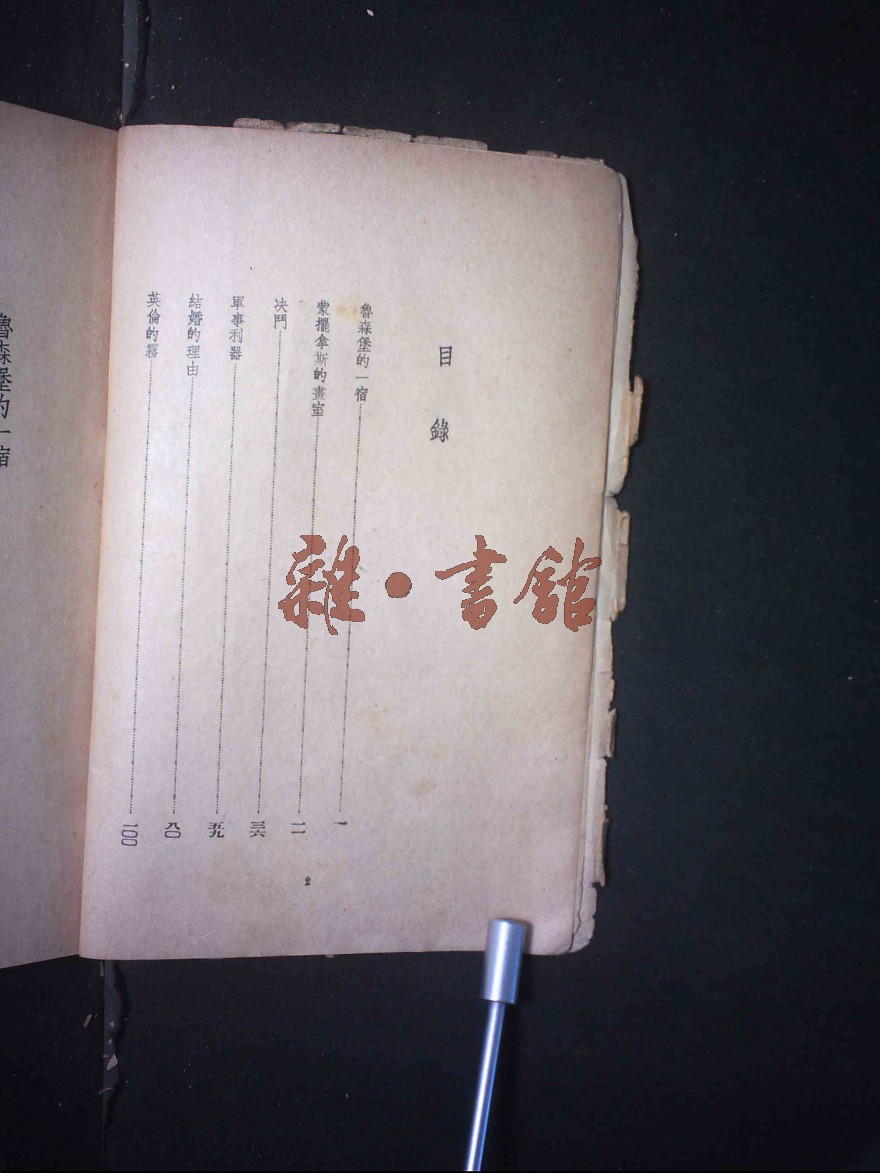 目錄
魯森堡的一宿……一
蒙擺拿斯的畫室……一一
决鬥……三六
軍事利器……五九
結婚的理由……八〇
英倫的霧……一〇〇
2
魯森堡的一宿
雜·書館